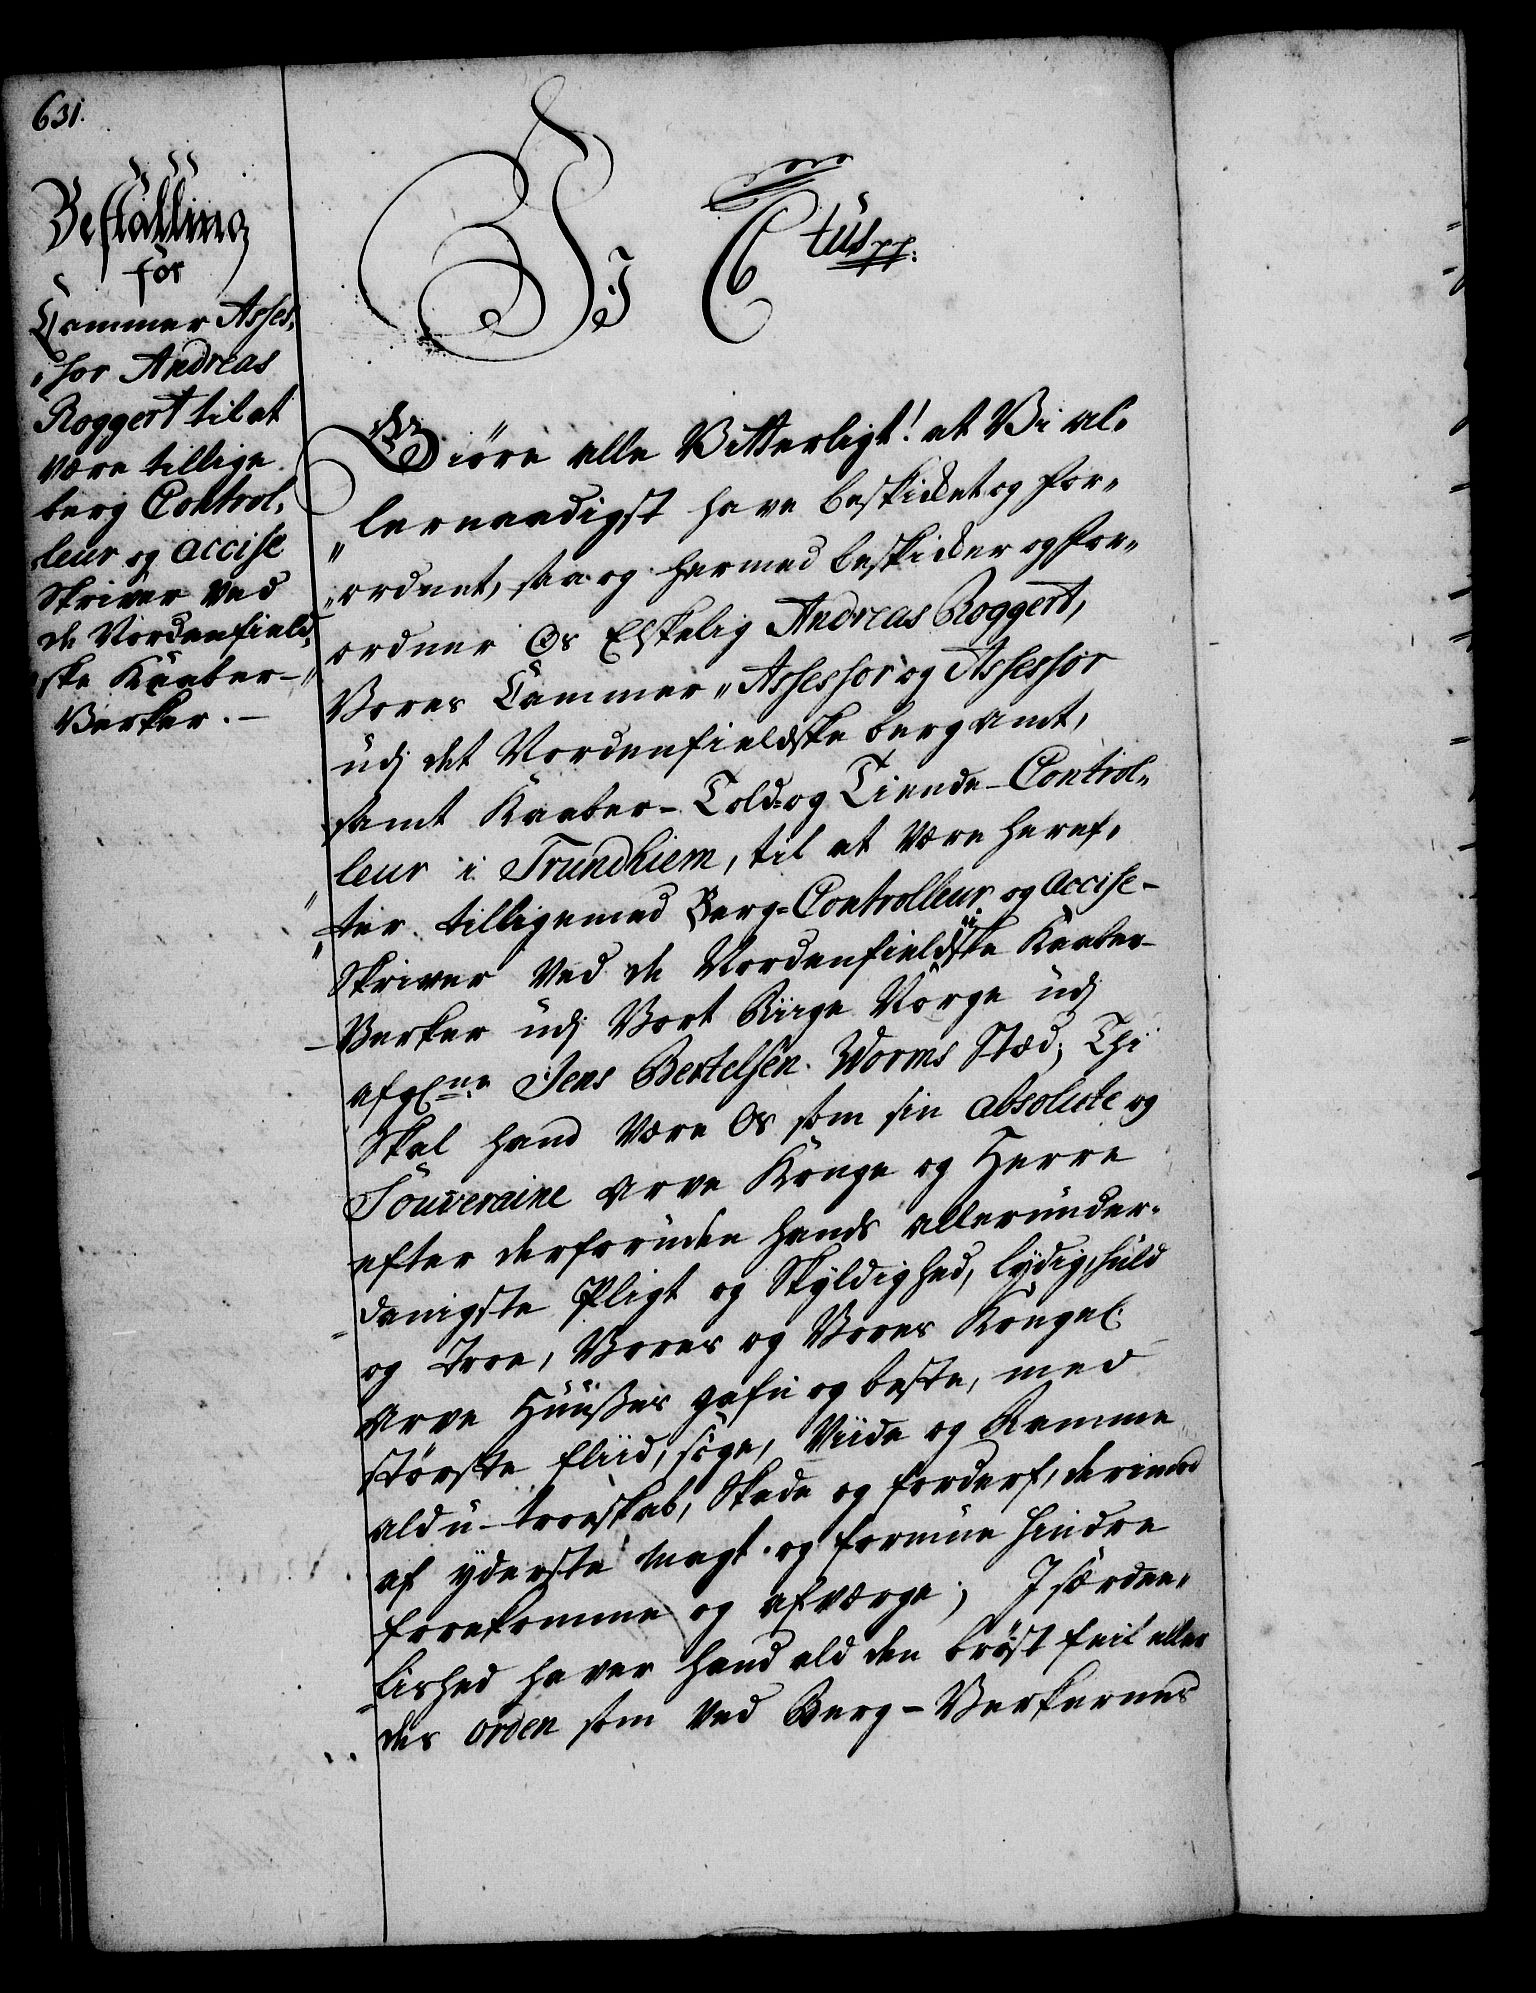 631.
Bestalling
for
Cammer Asses„
„sor Andreas
Roggert til at
være tillige
berg Control„
leur og accise
Skriver ved
de Nordenfield„
„ske Kaaber-
Verker. —
Vi C tus pp:
Giöre alle Vitterligt! at Vi al„
„lernaadigst have beskicket og for„
„ordnet, saa og hermed beskicker og for„
ordner Os Elskelig Andreas Roggert,
Vores Cammer „ Assessor og Assessor
udj det Nordenfieldske berg amt,
samt Kaaber - Told- og Tiende - Control„
leur i Trundhiem, til at være heref„
„ter tilligemed Berg-Controlleur og accise-
Skriver ved de Nordenfieldske Kaaber-
Verker udj Vort Riige Norge udj
afgl:ne Jens Bertelsen Worms Stæd; Thi
Skal hand være Os som sin absolute og
Souveraine Arve Konge og Herre
efter derforuden hands allerunder-
danigste Pligt og Skyldighed, lydig, huld
og troe, Vores og Vores Kongel:
Arve Huuses gafn og beste, med
største fliid, søge, Viide og Ramme
ald u-troeskab, Skade og forderf, derimod
af yderste magt og formue hindre
forekomme og afværge; I særdee„
lished haver hand ald den brøst feil eller
des orden som ved Berg-Verkernes